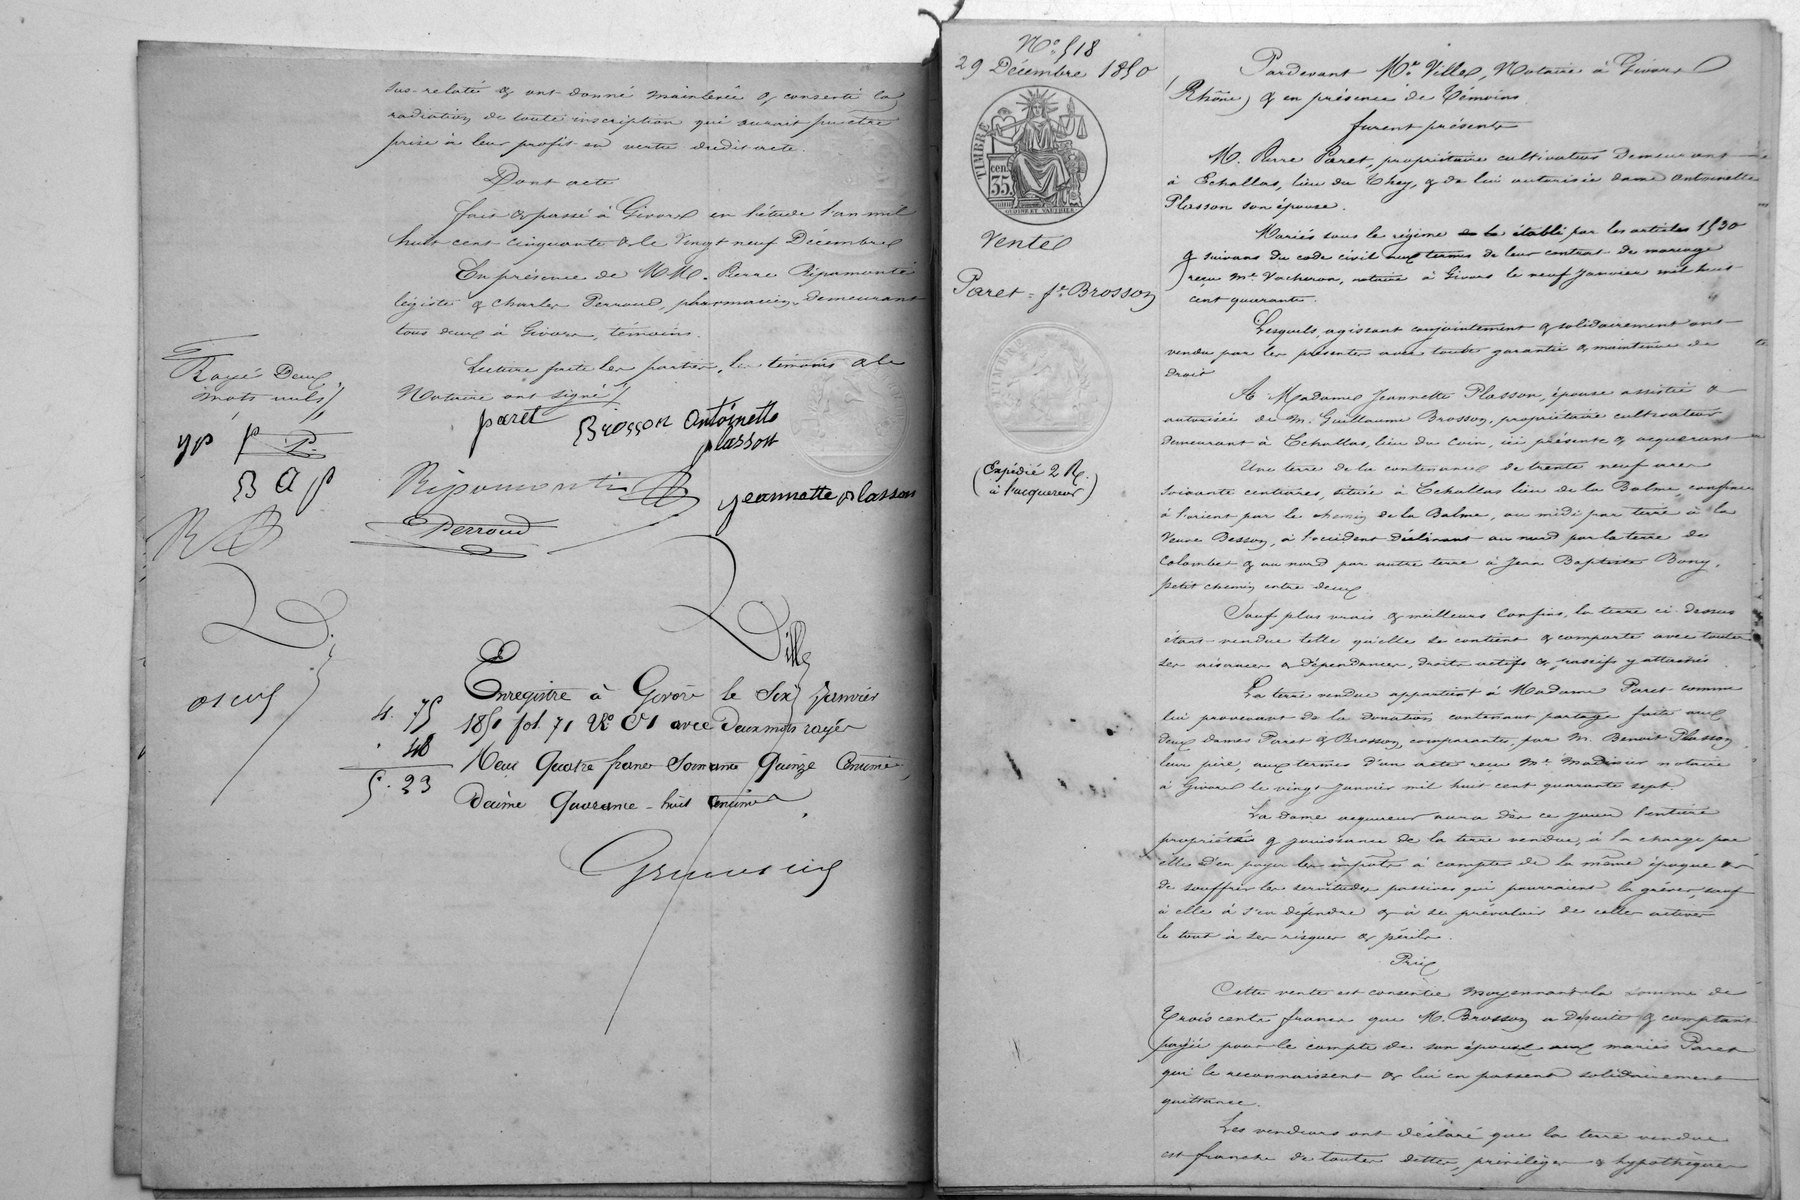 sus-relaté & ont donné mainlevée & consenti la
radiation de toute inscription qui aurait pu être
prise à leur profit en vertu dudit acte.
Dont acte
fait & passé à Givors en l'étude l'an mil
huit cent cinquante & le Vingt neuf Décembre
En présence de MM. Pierre Ripamonti
légiste & Charles Perroud, pharmacien, demeurant
tous deux à Givors, témoins.
Lecture faite les parties, les témoins & le
Notaire ont signé/.
Rayé Deux
mots nuls/.
paret Brosson Antoinette
plasson
yp P P.
B A P
Ripamonti jeannette plasson
RB
Perroud
Ville
Enregistré à Givors le Six Janvier
1851 fol. 71 Ro C1 avec Deux mots rayés
Reçu Quatre francs Soixante Quinze Centimes,
Décime Quarante-huit centimes.
4. 75
. 48
5. 23
No 518
29 Décembre 1850
TIMBRE
cen. 35
Vente
Paret = fe Brosson
(Expédié 2 R.
à l'acquéreur)
Pardevant Me Ville, Notaire à Givors
(Rhône) & en présence de témoins
furent présents
M. Pierre Paret, propriétaire cultivateur demeurant
à Echallas, lieu du They, & de lui autorisée dame Antoinette
Plasson son épouse.
Mariés sous le régime établi par les articles 1530
& suivans du code civil aux termes de leur contrat de mariage
reçu Me Vacheron, notaire à Givors le neuf Janvier mil huit
cent quarante.
Lesquels agissant conjointement & solidairement ont
vendu par les présentes avec toute garantie & maintenue de
droit
A Madame Jeannette Plasson, épouse assistée &
autorisée de M. Guillaume Brosson, propriétaire cultivateur
demeurant à Echallas, lieu du Coin, ici présente & acquérant
Une terre de la contenance de trente neuf ares
soixante centiares, située à Echallas lieu de la Balme, confinée
à l'orient par le chemin de la Balme, au midi par terre à la
Veuve Besson, à l'occident déclinant au nord par la terre de
Colombet & au nord par autre terre à Jean Baptiste Bony,
petit chemin entre deux.
Sauf plus vrais & meilleurs confins, la terre ci-dessus
étant vendue telle qu'elle se contient & comporte avec toutes
ses aisances & dépendances, droits actifs & passifs y attachés.
La terre vendue appartient à Madame Paret comme
lui provenant de la donation contenant partage faite aux
deux dames Paret & Brosson, comparantes, par M. Benoit Plasson
leur père, aux termes d'un acte reçu Me Madinier notaire
à Givors le vingt Janvier mil huit cent quarante sept.
La dame acquéreur aura dès ce jour l'entière
propriété & jouissance de la terre vendue, à la charge par
elle d'en payer les impôts à compter de la même époque &
de souffrir les servitudes passives qui pourraient la grever, sauf
à elle à s'en défendre & à se prévaloir de celles actives
le tout à ses risques & périls.
Prix
Cette vente est consentie moyennant la somme de
Trois cents francs que M. Brosson a desuite & comptant
payée pour le compte de son épouse aux mariés Paret
qui le reconnaissent & lui en passent solidairement
quittance.
Les vendeurs ont déclaré que la terre vendue
est franche de toutes dettes, privilèges & hypothèques